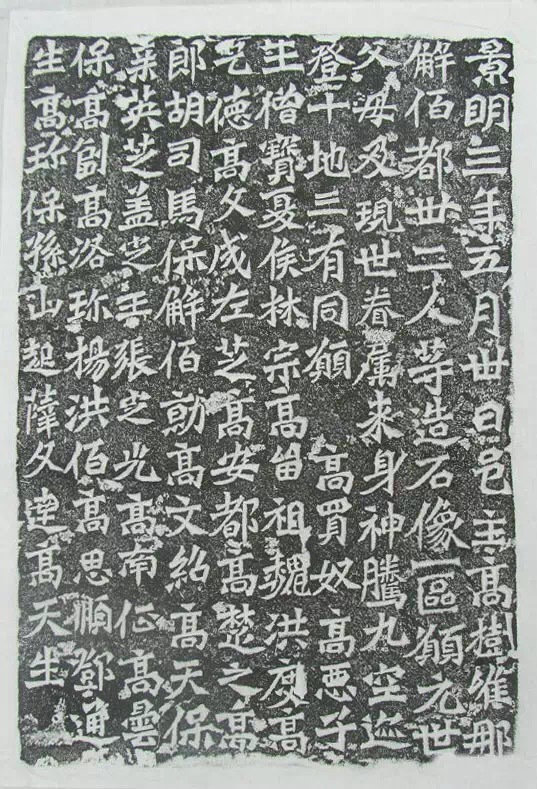 景明三年五月卅日邑主高樹維那
解佰都卅二人等造石像一區願元世
父母及現世眷属来身神騰九空迹
登十地三有同願 高買奴 高悪子
王僧寶夏侯林宗高留祖魏洪度高
乞德高文成左芝高安都高楚之高
郎胡司馬保解佰勍高文紹高天保
英芝盖定王張定光高南征高曇
保高副高洛珎楊洪佰高思順鄧通
生高珎保孫山起薛文達高天生